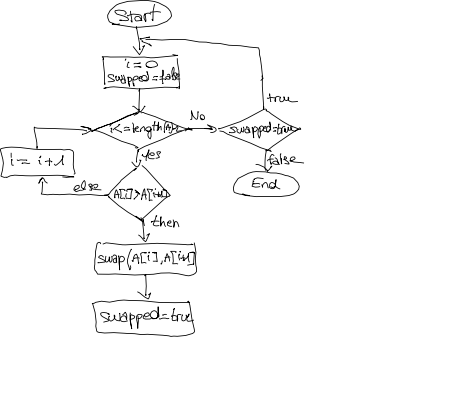 Start
i=0
swapped=false
i<=length(A)-1
No
swapped=true
true
false
End
yes
i= i+1
else
A[i]>A[i+1]
then
swap(A[i],A[i+1]
swapped=true